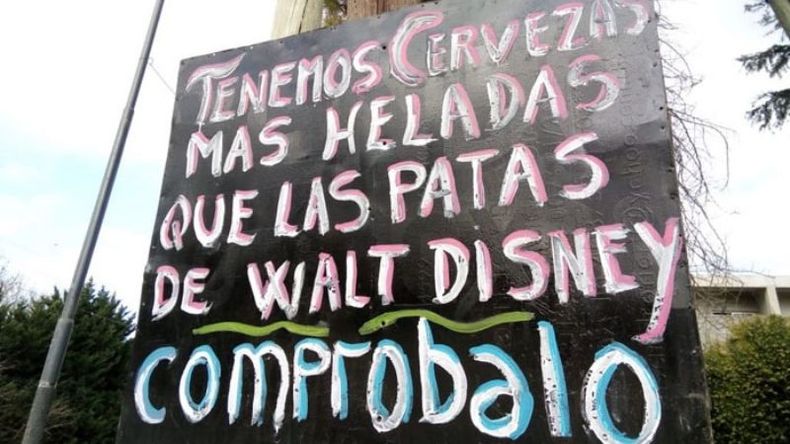 TENEMOS CERVEZAS
MAS HELADAS
QUE LAS PATAS
DE WALT DISNEY
comprobalo